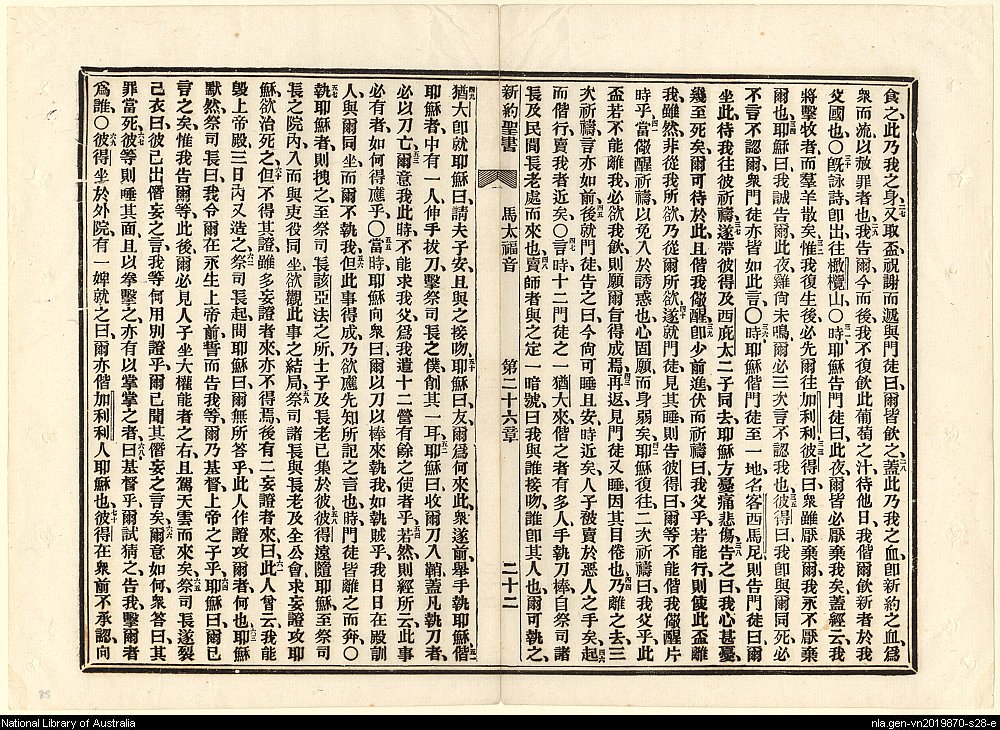 食之、此乃我之身、又取盃祝謝而遞與門徒曰、爾皆飲之、蓋此乃我之血、卽新約之血、爲
衆而流、以赦罪者也、我告爾、今而後我不復飲此葡萄之汁、待他日、我偕爾飲新者於我
父國也、〇旣詠詩、卽出往橄欖山、〇時耶穌告門徒曰、此夜爾皆必厭棄我矣、蓋經云、我
將擊牧者、而羣羊散矣、惟我復生後、必先爾往加利利、彼得曰、衆雖厭棄爾、我永不厭棄
爾也、耶穌曰、我誠告爾、此夜雞尙未鳴、爾必三次言不認我也、彼得曰、我卽與爾同死、必
不言不認爾、衆門徒亦皆如此言、〇時耶穌偕門徒至一地、名客西馬尼、則告門徒曰、爾
坐此、待我往彼祈禱、遂帶彼得及西庇太二子同去、耶穌方憂痛悲傷、告之曰、我心甚憂、
幾至死矣、爾可待於此、且偕我儆醒、卽少前進、伏而祈禱曰、我父乎、若能行、則使此盃離
我、雖然、非從我所欲、乃從爾所欲、遂就門徒、見其睡、則告彼得曰、爾等不能偕我儆醒片
時乎、當儆醒祈禱、以免入於誘惑也、心固願而身弱矣、耶穌復往、二次祈禱曰、我父乎、此
盃若不能離我、我必欲我飲、則願爾旨得成焉、再返、見門徒又睡、因其目倦也、乃離之去、三
次祈禱、言亦如前、後就門徒、告之曰、今尙可睡且安、時近矣、人子被賣於惡人之手矣、起
而偕行、賣我者近矣、〇言時、十二門徒之一猶大來、偕之者有多人、手執刀棒、自祭司諸
長及民間長老處而來也、賣師者與之定一暗號曰、我與誰接吻、誰卽其人也、爾可執之、
新約聖書 馬太福音 第二十六章 二十二
猶大卽就耶穌曰、請夫子安、且與之接吻、耶穌曰、友、爾爲何來、此衆遂前、舉手執耶穌、偕
耶穌者、中有一人伸手拔刀、擊祭司長之僕、創其一耳、耶穌曰、收爾刀入鞘、蓋凡執刀者、
必以刀亡、爾意我此時不能求我父、爲我遣十二營有餘之使者乎、若然、則經所云、此事
必有者、如何得應乎、〇當時耶穌向衆曰、爾以刀以棒來執我、如執賊乎、我日日在殿訓
人、與爾同坐、而爾不執我、但此事得成、乃欲應先知所記之言也、時門徒皆離之而奔、〇
執耶穌者、則拽之至祭司長該亞法之所、士子及長老已集於彼、彼得遠隨耶穌、至祭司
長之院內、入而與吏役同坐、欲觀此事之結局、祭司諸長與長老及全公會、求妄證攻耶
穌、欲治死之、但不得其證、雖多妄證者來、亦不得焉、後有二妄證者來曰、此人曾云、我能
毀上帝殿、三日內又造之、祭司長起問耶穌曰、爾無所答乎、此人作證攻爾者何也、耶穌
默然、祭司長曰、我令爾在永生上帝前誓而告我等、爾乃基督、上帝之子乎、耶穌曰、爾已
言之矣、惟我告爾等、此後爾必見人子坐大權能者之右、且駕天雲而來矣、祭司長遂裂
己衣曰、彼已出僭妄之言、我等何用別證乎、爾已聞其僭妄之言矣、爾意如何、衆答曰、其
罪當死、彼等則唾其面、且以拳擊之、亦有以掌掌之者、曰、基督乎、爾試猜之、告我擊爾者
爲誰、〇彼得坐於外院、有一婢就之曰、爾亦偕加利利人耶穌也、彼得在衆前不承認、向
85
National Library of Australia
nla.gen-vn2019870-s28-e